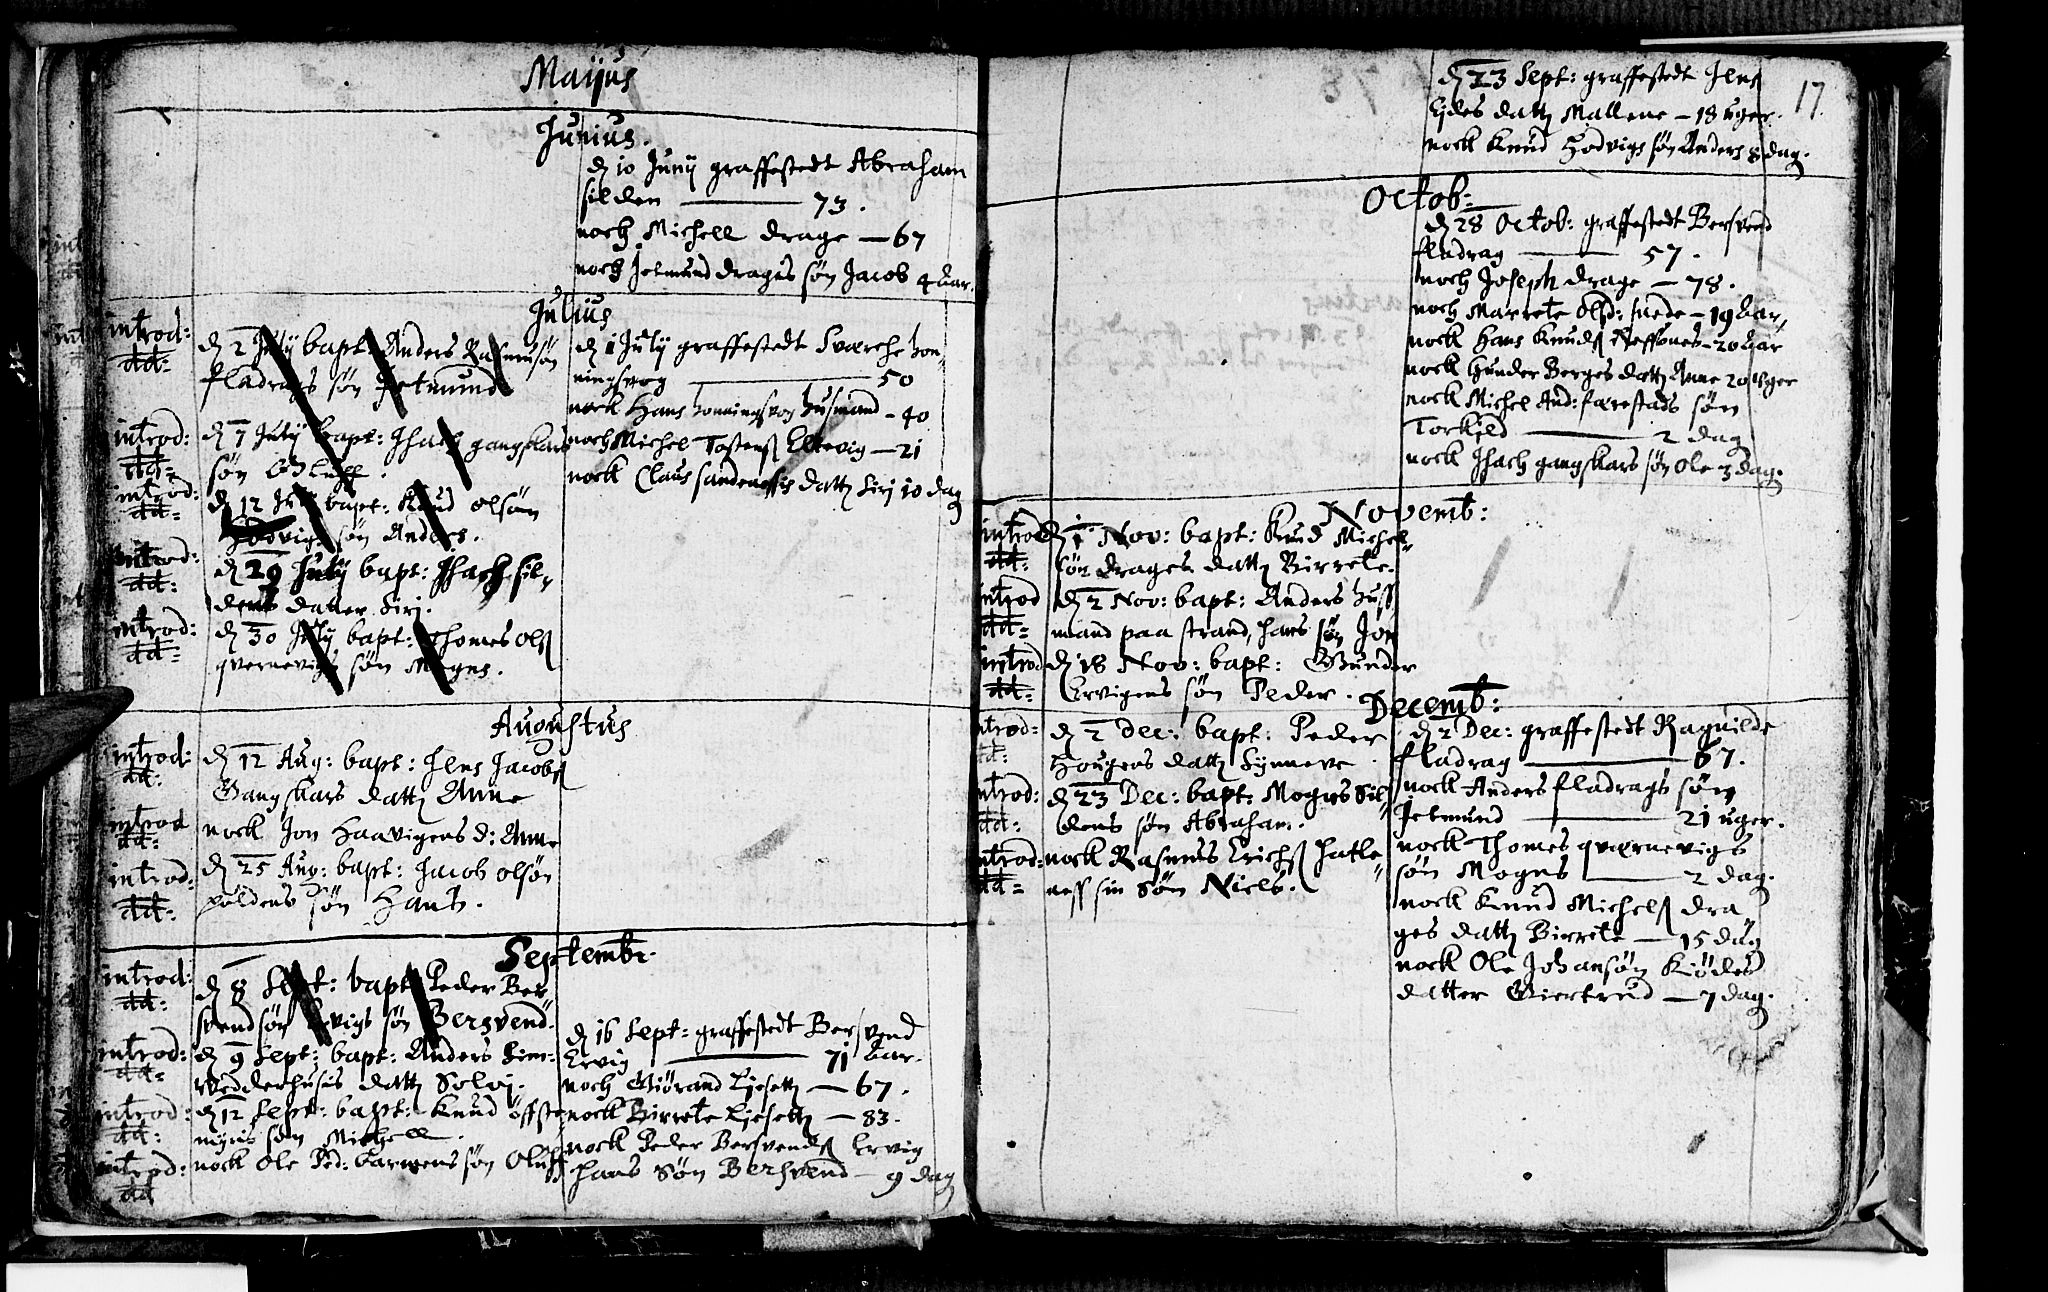 Maijus
Junius.
d 10 Junij graffestedt Abraham
silden — 73.
noch Michell drage — 67
noch Jetmund drages søn Jacob 4 aar.
Julius
introd:
dd:
d 2 July bapt: Anders Rasmusøn
fladrags søn Jetmund
introd:
dd:
d 7 July bapt: Isach gangskars
søn Oluff.
introd:
dd:
d 12 July bapt: Knud olsøn
Hodvigs søn Anders.
introd:
dd:
d 29 July bapt: Isach sil-
dens datter Siri.
introd:
dd:
d 30 July bapt: Thomes Ols
qvernevigs søn Mogns.
d 1 July graffestedt Sværche hon-
ningsvog — 50
nock Hans honningsvog husmand - 40
noch Michel Tostens Eltevig — 21
nock Claus sandenessis datt Siri 10 dag
Augustus
introd:
dd:
d 12 Aug: bapt: Jens Jacobs
Gangskars datt Anne
introd
dd:
nock Jon Haavigens d: Anne
introd:
dd:
d 25 Aug: bapt: Jacob olsøn
pøldens søn Hans.
Septembr.
introd:
dd:
d 8 Sept: bapt Peder Ber
svendsøn Ervigs søn Bersvend.
introd:
dd:
d 9 Sept: bapt: Anders Sim-
vedderhusis datt Solvi.
introd:
dd:
d 12 Sept: bapt: Knud øffste
myris søn Michell.
introd:
dd
nock Ole Ped: barmens søn Oluff
d 16 Sept: graffestedt Bersvend
Ervig — 71 aar.
noch Giørand Liesett — 67.
nock Birrete Liesett — 83.
nock Peder Bersvends Ervig
hans søn Bersvend — 9 dag
17.
d 23 Sept: graffestedt Jens
Eides datt Mallene — 18 uger.
nock Knud Hodvigs søn Anders 8 dag.
Octob:
d 28 Octob: graffestedt Bersvend
fladrag — 57.
noch Joseph drage — 78.
noch Marrete Olsd: — 19 aar,
nock Hans Knuds — 20 aar
nock Gunder Berges datt Anne 20 uger
nock Michel And: færestads søn
Torkild — 2 dag
nock Isach gangskars søn Ole 3 dag.
Novemb:
introd
dd:
d 1 Nov: bapt: Knud Michel-
søn drages datt Birrete.
introd
dd:
d 2 Nov: bapt: Anders huss
mand paa strand, hans søn Jon
introd
dd:
d 18 Nov: bapt: Gunder
Ervigens søn Peder.
Decemb:
introd:
dd:
d 2 Dec: bapt: Peder
Hougens datt Synneve.
introd:
dd:
d 23 Dec: bapt: Mogns Sil-
dens søn Abraham.
introd:
dd:
nock Rasmus Erichs hatle-
ness sin søn Niels.
d 2 Dec: graffestedt Ragnilde
fladrag — 67.
nock Anders fladrags søn
Jetmund — 21 uger.
nock Thomes qværnevigs
søn Mogns — 2 dag.
nock Knud Michels dra
ges datt Birrete — 15 dag
nock Ole Johansøn Kiødes
datter Giertrud — 7 dag.